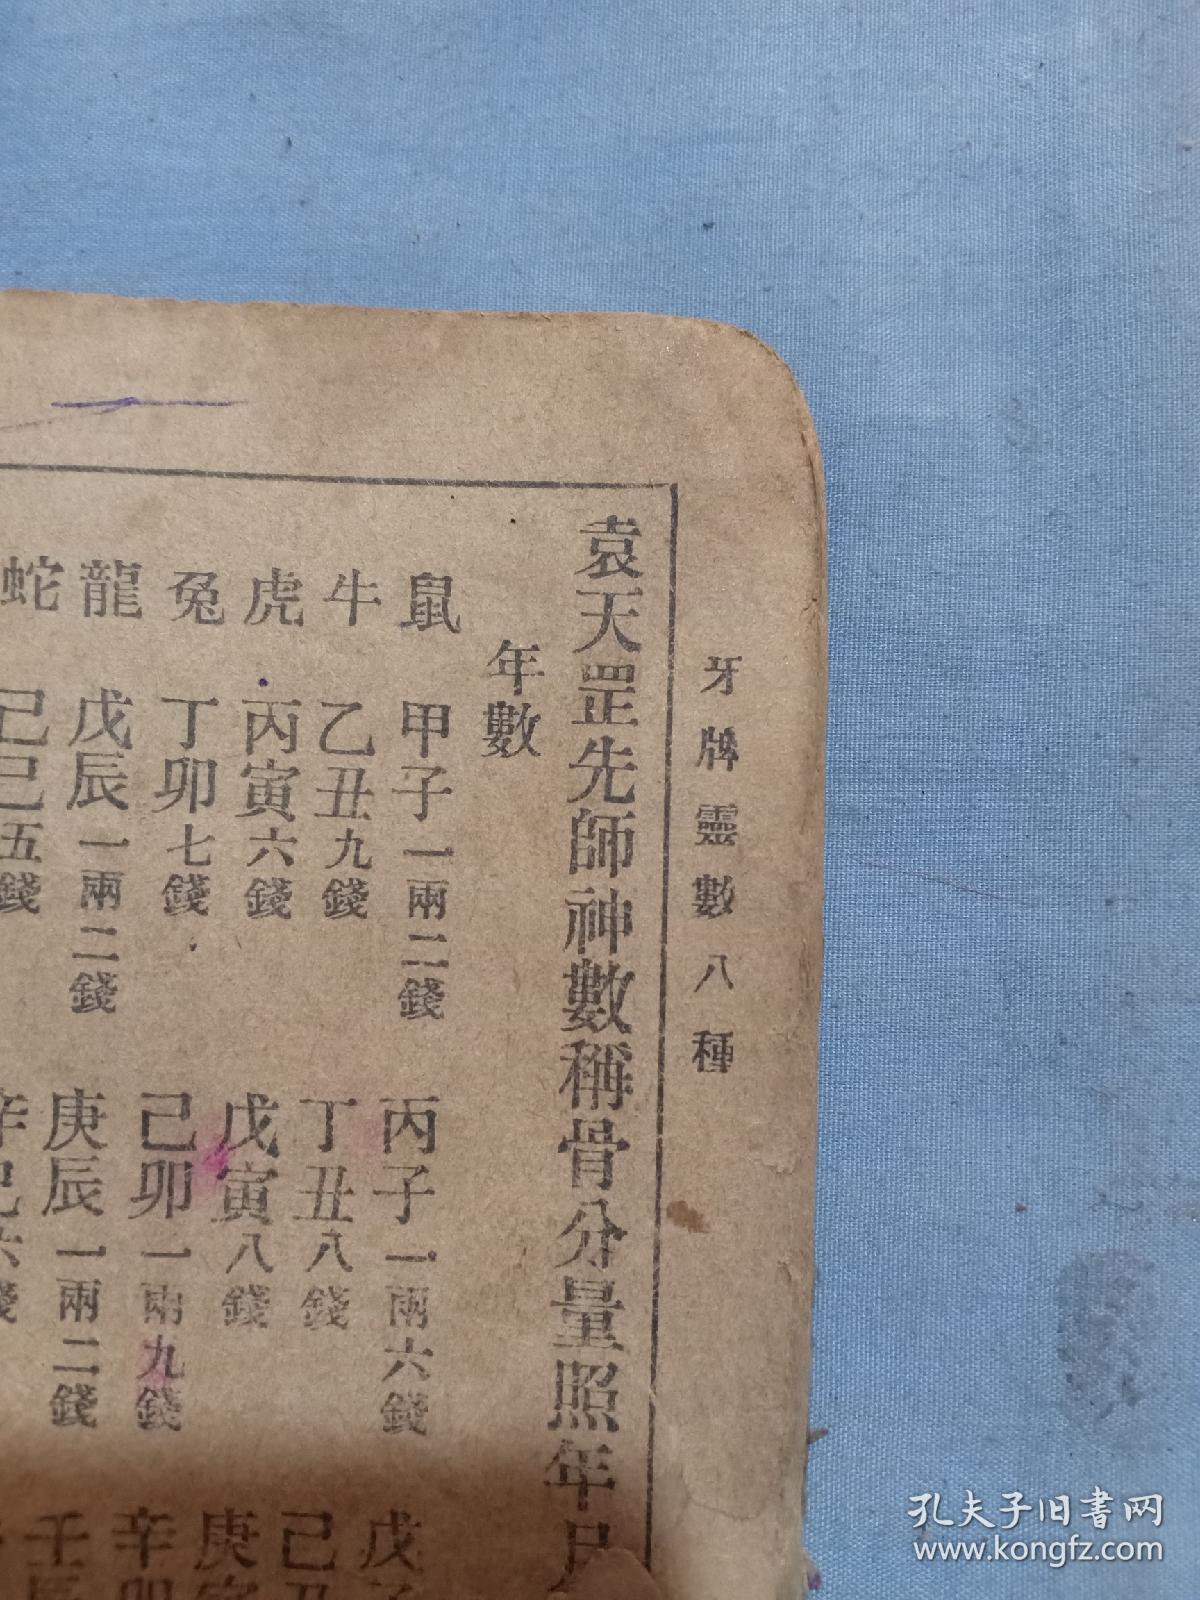 牙牌靈數八種
袁天罡先師神數稱骨分量照年月
年數
鼠 甲子一兩二錢 丙子一兩六錢 戊子
牛 乙丑九錢 丁丑八錢 己丑
虎 丙寅六錢 戊寅八錢 庚寅
兔 丁卯七錢 己卯一兩九錢 辛卯
龍 戊辰一兩二錢 庚辰一兩二錢 壬辰
蛇 己巳五錢 辛巳六錢
孔夫子旧书网
www.kongfz.com